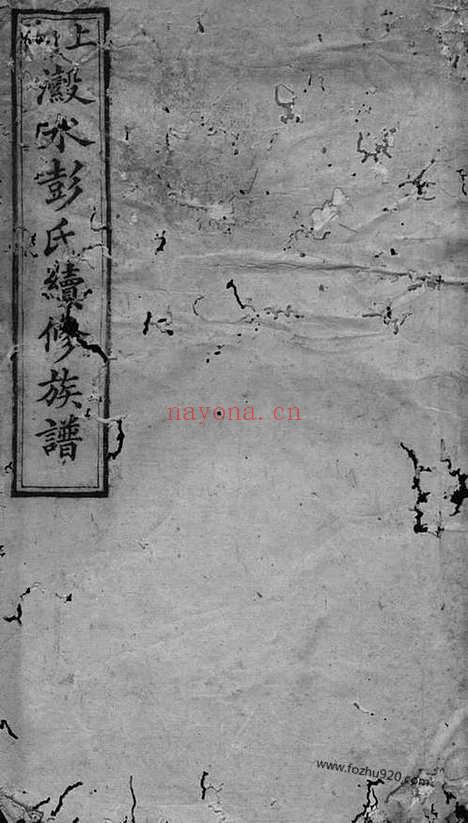 上
澂水彭氏續修族譜
nayona.cn
www.fozhu920.com